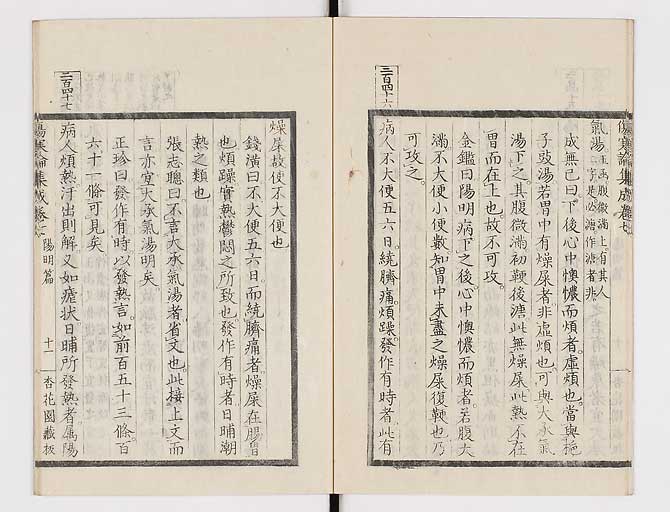 傷寒論集成卷七
氣湯
成無己曰下後心中懊憹而煩者虛煩也當與梔
子豉湯若胃中有燥屎者非虛煩也可與大承氣
湯下之其腹微滿初鞕後溏此無燥屎此熱不在
胃而在上也故不可攻
金鑑曰陽明病下之後心中懊憹而煩者若腹大
滿不大便小便數知胃中未盡之燥屎復鞕也乃
可攻之
二百四十六
病人不大便五六日繞臍痛煩躁發作有時者此有
燥屎故使不大便也
錢潢曰不大便五六日而繞臍痛者燥屎在腸胃
也煩躁實熱鬱悶之所致也發作有時者日晡潮
熱之類也
張志聰曰不言大承氣湯者省文也此接上文而
言亦宜大承氣湯明矣
正珍曰發作有時以發熱言如前百五十三條百
六十一條可見矣
二百四十七
病人煩熱汗出則解又如瘧狀日晡所發熱者屬陽
傷寒論集成卷七 陽明篇 十一 杏花園藏板